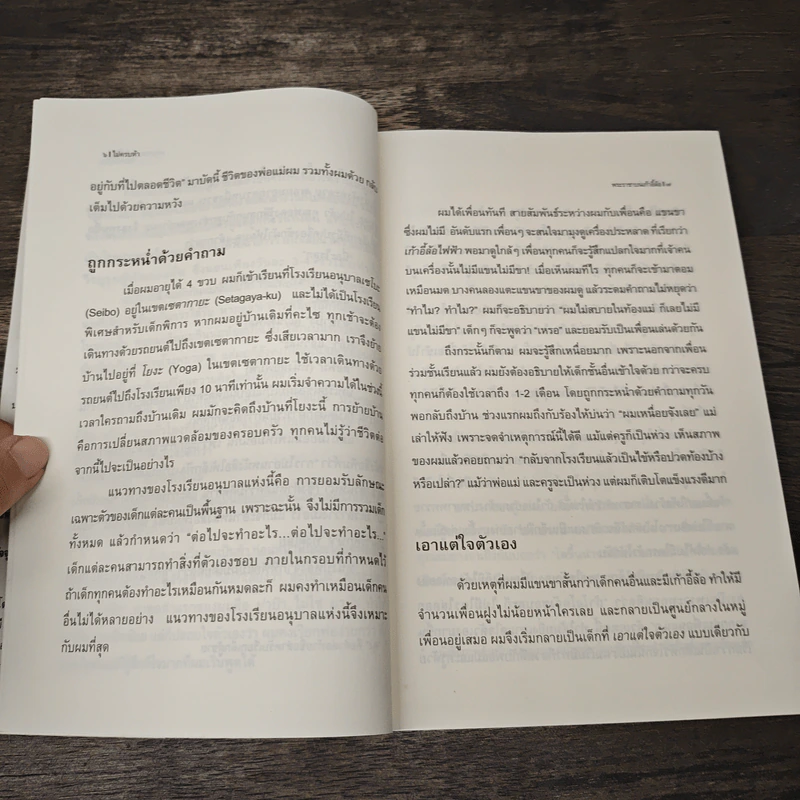 ๖ ไม่ครบห้า
อยู่กับที่ไปตลอดชีวิต" มาบัดนี้ ชีวิตของพ่อแม่ผม รวมทั้งผมด้วย กลับ
เต็มไปด้วยความหวัง
ถูกกระหน่ำด้วยคำถาม
เมื่อผมอายุได้ 4 ขวบ ผมก็เข้าเรียนที่โรงเรียนอนุบาลเซโบะ
(Seibo) อยู่ในเขตเซตากายะ (Setagaya-ku) และไม่ได้เป็นโรงเรียน
พิเศษสำหรับเด็กพิการ หากผมอยู่บ้านเดิมที่คะไซ ทุกเช้าจะต้อง
เดินทางด้วยรถยนต์ไปถึงเขตเซตากายะ ซึ่งเสียเวลามาก เราจึงย้าย
บ้านไปอยู่ที่ โยงะ (Yoga) ในเขตเซตากายะ ใช้เวลาเดินทางด้วย
รถยนต์ไปถึงโรงเรียนเพียง 10 นาทีเท่านั้น ผมเริ่มจำความได้ในช่วงนี้
เวลาใครถามถึงบ้านเดิม ผมมักจะคิดถึงบ้านที่โยงะนี้ การย้ายบ้าน
คือการเปลี่ยนสภาพแวดล้อมของครอบครัว ทุกคนไม่รู้ว่าชีวิตต่อ
จากนี้ไปจะเป็นอย่างไร
แนวทางของโรงเรียนอนุบาลแห่งนี้คือ การยอมรับลักษณะ
เฉพาะตัวของเด็กแต่ละคนเป็นพื้นฐาน เพราะฉะนั้น จึงไม่มีการรวมเด็ก
ทั้งหมด แล้วกำหนดว่า "ต่อไปจะทำอะไร...ต่อไปจะทำอะไร..."
เด็กแต่ละคนสามารถทำสิ่งที่ตัวเองชอบ ภายในกรอบที่กำหนดไว้
ถ้าเด็กทุกคนต้องทำอะไรเหมือนกันหมดละก็ ผมคงทำเหมือนเด็กคน
อื่นไม่ได้หลายอย่าง แนวทางของโรงเรียนอนุบาลแห่งนี้จึงเหมาะ
กับผมที่สุด
พระราชาบนเก้าอี้ล้อ ๗
ผมได้เพื่อนทันที สายสัมพันธ์ระหว่างผมกับเพื่อนคือ แขนขา
ซึ่งผมไม่มี อันดับแรก เพื่อนๆ จะสนใจมามุงดูเครื่องประหลาด ที่เรียกว่า
เก้าอี้ล้อไฟฟ้า พอมาดูใกล้ๆ เพื่อนทุกคนก็จะรู้สึกแปลกใจมากที่เจ้าคน
บนเครื่องนั้นไม่มีแขนไม่มีขา! เมื่อเห็นผมทีไร ทุกคนก็จะเข้ามาตอม
เหมือนมด บางคนลองแตะแขนขาของผมดู แล้วระดมคำถามไม่หยุดว่า
"ทำไม? ทำไม?" ผมก็จะอธิบายว่า "ผมไม่สบายในท้องแม่ ก็เลยไม่มี
แขนไม่มีขา" เด็กๆ ก็จะพูดว่า "เหรอ" และยอมรับเป็นเพื่อนเล่นด้วยกัน
ถึงกระนั้นก็ตาม ผมจะรู้สึกเหนื่อยมาก เพราะนอกจากเพื่อน
ร่วมชั้นเรียนแล้ว ผมยังต้องอธิบายให้เด็กชั้นอื่นเข้าใจด้วย กว่าจะครบ
ทุกคนก็ต้องใช้เวลาถึง 1-2 เดือน โดยถูกกระหน่ำด้วยคำถามทุกวัน
พอกลับถึงบ้าน ช่วงแรกผมถึงกับร้องไห้บ่นว่า "ผมเหนื่อยจังเลย" แม่
เล่าให้ฟัง เพราะจดจำเหตุการณ์นี้ได้ดี แม้แต่ครูก็เป็นห่วง เห็นสภาพ
ของผมแล้วคอยถามว่า "กลับจากโรงเรียนแล้วเป็นไข้หรือปวดท้องบ้าง
หรือเปล่า?" แม้ว่าพ่อแม่ และครูจะเป็นห่วง แต่ผมก็เติบโตแข็งแรงดีมาก
เอาแต่ใจตัวเอง
ด้วยเหตุที่ผมมีแขนขาสั้นกว่าเด็กคนอื่นและมีเก้าอี้ล้อ ทำให้มี
จำนวนเพื่อนฝูงไม่น้อยหน้าใครเลย และกลายเป็นศูนย์กลางในหมู่
เพื่อนอยู่เสมอ ผมจึงเริ่มกลายเป็นเด็กที่ เอาแต่ใจตัวเอง แบบเดียวกับ